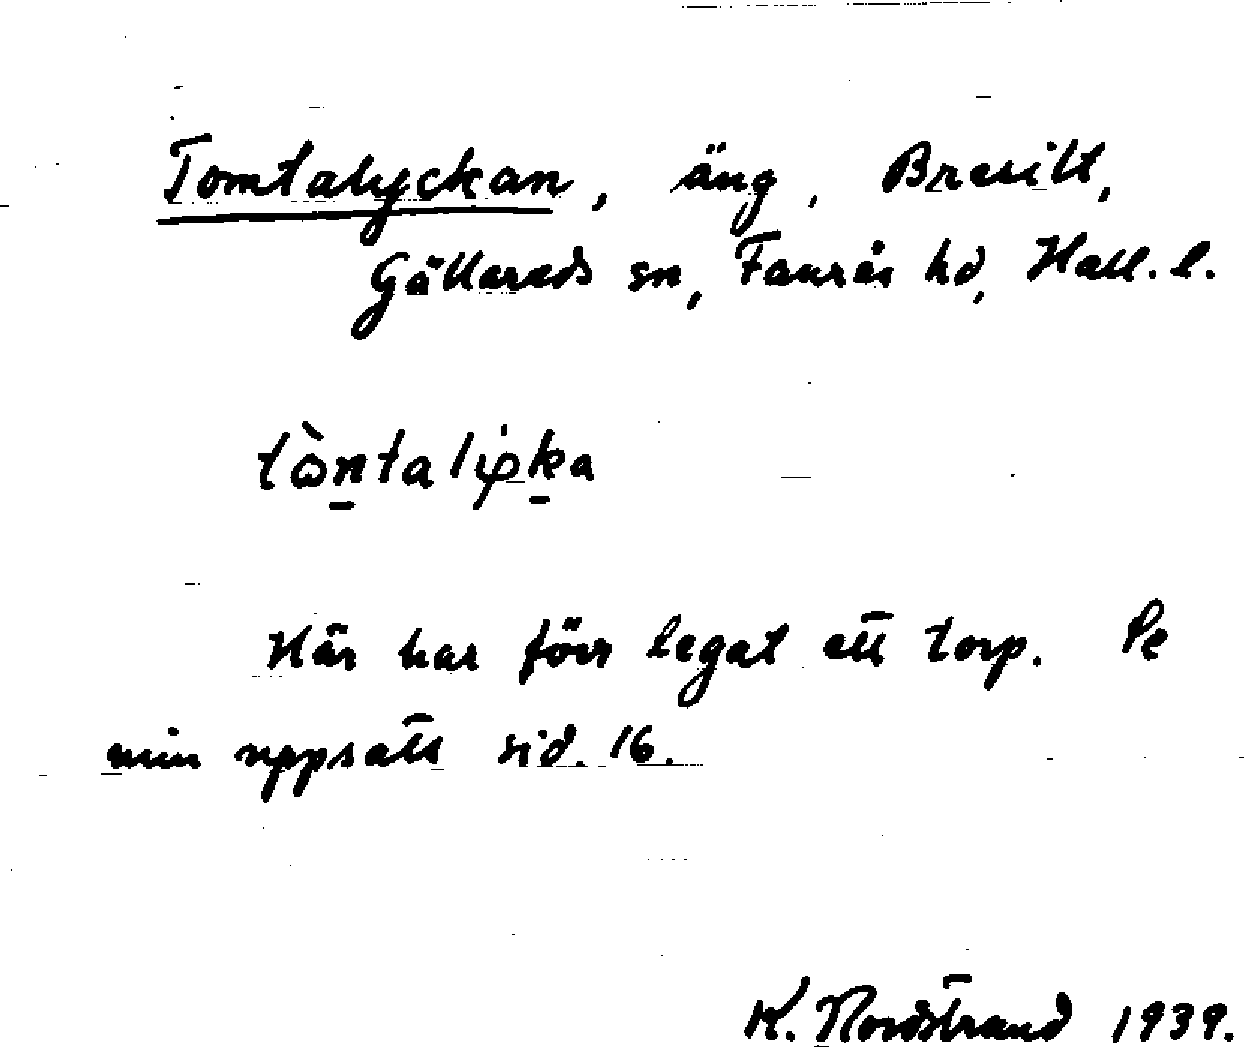 Tomtalyckan, äng, Bresilt,
Gällareds sn, Faurås hd, Hall. l.
tòntaliφka
Här har förr legat ett torp. Se
min uppsats sid. 16.
K. Nordstrand 1939.